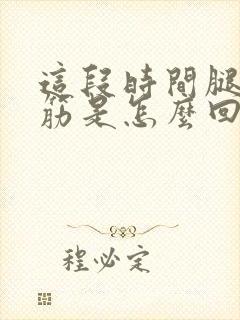 這段時間腿
筋是怎麼回
程必定